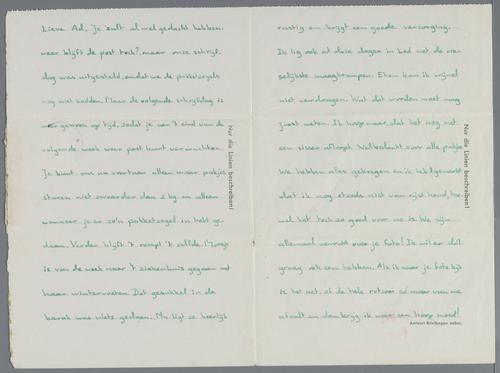 Lieve Ad, Je zult al wel gedacht hebben,
waar blijft de post toch?, maar onze schrijf-
dag was uitgesteld, omdat we de pakketzegels
nog niet hadden. Maar de volgende schrijfdag is
weer gewoon op tijd, zodat je aan 't eind van de
volgende week weer post kunt verwachten.
Je kunt ons nu voortaan alleen maar pakjes
sturen niet zwaarder dan 2 kg. en alleen
wanneer je er zo'n pakketzegel in hebt ge-
daan. Verder blijft 't recept 't zelfde.
is van de week naar 't ziekenhuis gegaan met
haar winterwonten. Dat gesukkel in de
barak was niets gedaan. Nu ligt ze heerlijk
Nur die Linien beschreiben!
rustig en krijgt een goede verzorging.
Ik lig ook al drie dagen in bed met de vre-
selijkste maagkrampen. Eten kan ik vrijwel
niet verdragen. Wat dat worden moet mag
Joost weten. Ik hoop maar, dat het nog met
een sisser afloopt. Wel bedankt voor alle pakjes
We hebben alles gekregen en ik heb genoest
dat ik nog steeds niet van rijst houd, hoe-
wel het toch zo goed voor me is. We zijn
allemaal verrukt over je foto! Ik wil er dolf
graag ook een hebben. Als ik naar je foto kijk
is het net, of de hele rotzooi zo maar van me
afvalt en dan krijg ik weer een hoop moed!
Nur die Linien beschreiben!
Antwort-Briefbogen anbei.